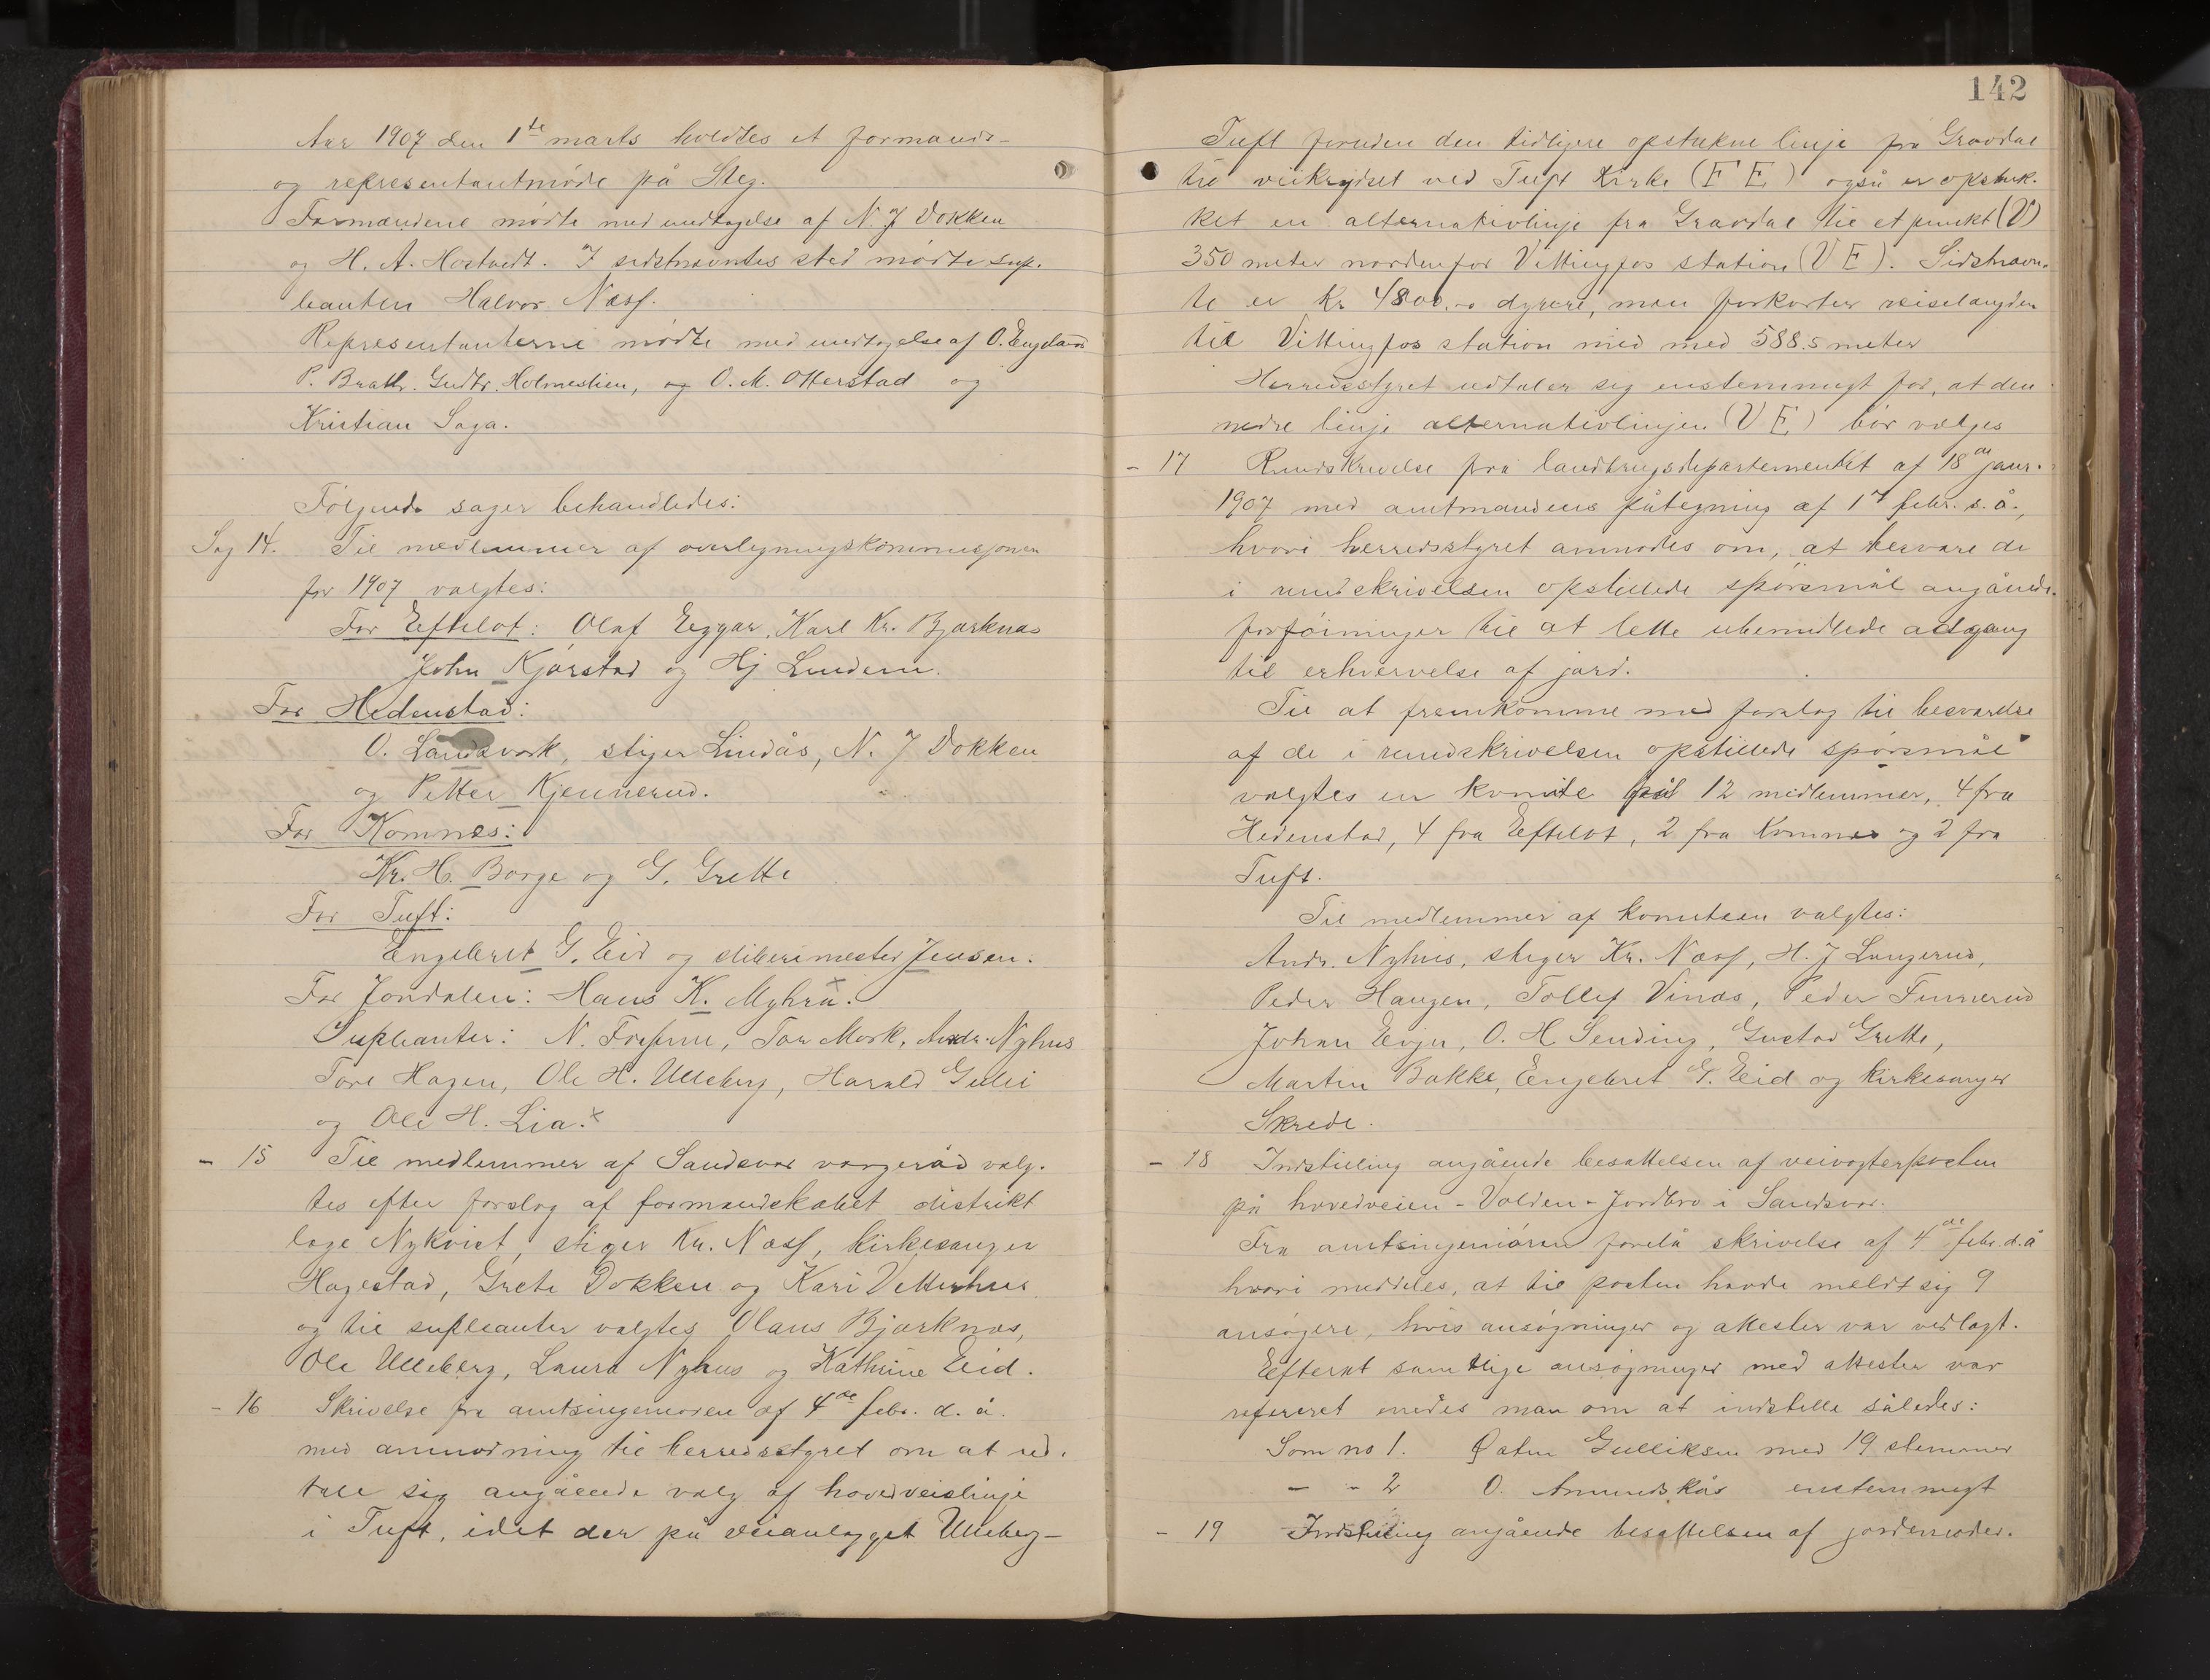 Aar 1907 den 1ste marts holdtes et formands-
og representantmøde på Steg.
Formændene mødte med undtagelse af N. J Dokken
og H. A. Hostvedt. I sidstnævntes sted mødte sup-
leanten Halvor Næss.
Representanterne mødte med undtagelse af O. Engeland
P. Brath. Gudbr. Holmeslien, og O. M. Otterstad og
Kristian Saga.
Følgende sager behandledes:
Sag 14. Til medlemmer af overligningskommisjonen
for 1907 valgtes:
For Efteløt: Olaf Eggar, Karl Kr. Bjørknæs
John Kjørstad og Hj Lindem.
For Hedenstad:
O. Landsverk, stiger Lindås, N. J Dokken
og Petter Kjennerud.
For Komnes:
Kr. H. Borge og G. Grette
For Tuft:
Engebret G. Eid og sliberimester Jensen.
For Jondalen: Hans K. Myhra.x
Supleanter: N. Fossum, Tor Mork, Andr. Nyhus
Tore Hagen, Ole H. Ulleberg, Harald Gulli
og Ole H. Lia.x
- 15 Til medlemmer af Sandsvær vergeråd valg-
tes efter forslag af formandskabet distrikt
læge Nykvist, stiger Kr. Næss, kirkesanger
Hagestad, Grete Dokken og Kari Vetterhus
og til supleanter valgtes Olaus Bjørknæs,
Ole Ulleberg, Laura Nyhus og Kathrine Eid.
- 16 Skrivelse fra amtsingeniøren af 4de febr. d. å.
med anmodning til herredsstyret om at ud-
tale sig angående valg af hovedveislinje
i Tuft, idet der på veianlægget Ulleberg-
142
Tuft foruden den tidligere opstukne linje fra Gravdal
til veikrydset ved Tuft Kirke (F E) også er opstuk-
ket en alternativlinje fra Gravdal til et punkt (V)
350 meter nordenfor Vittingfos station (V E). Sidstnævn-
te er Kr 4800.- dyrere, men forkorter veilængden
til Vittingfos station med med 588.5 meter
Herredsstyret udtaler sig enstemmigt for, at den
nedre linje alternativlinjen (V E) bør vælges
- 17 Rundskrivelse fra landbrugsdepartementet af 18de janr.
1907 med amtmandens påtegning af 1ste febr. s. å.,
hvori herredsstyret anmodes om, at besvare de
i rundskrivelsen opstillede spørsmål angående
forføininger til at lette ubemidlede adgang
til erhvervelse af jord.
Til at fremkomme med forslag til besvarelse
af de i rundskrivelsen opstillede spørsmål
valgtes en komite på 12 medlemmer, 4 fra
Hedenstad, 4 fra Efteløt, 2 fra Komnes og 2 fra
Tuft.
Til medlemmer af komiteen valgtes:
Andr. Nyhus, stiger Kr. Næss, H. J Langerud,
Peder Haugen, Tollef Vinæs, Peder Finnerud
Johan Evju, O. H Sending, Gustav Grette,
Martin Bakke, Engebret G. Eid og kirkesanger
Skrede.
- 18 Indstilling angående besættelsen af veivogterposten
på hovedveien - Volden - Jordbro i Sandsvær.
Fra amtsingeniøren forelå skrivelse af 4de febr. d. å
hvori meddeles, at til posten havde meldt sig 9
ansøgere, hvis ansøgninger og attester var vedlagt.
Efterat samtlige ansøgninger med attester var
refereret enedes man om at indstille således:
Som no 1. Østen Gulliksen med 19 stemmer
- - 2 O. Amundskås enstemmigt
- 19 Indstilling angående besættelsen af jordemoder-